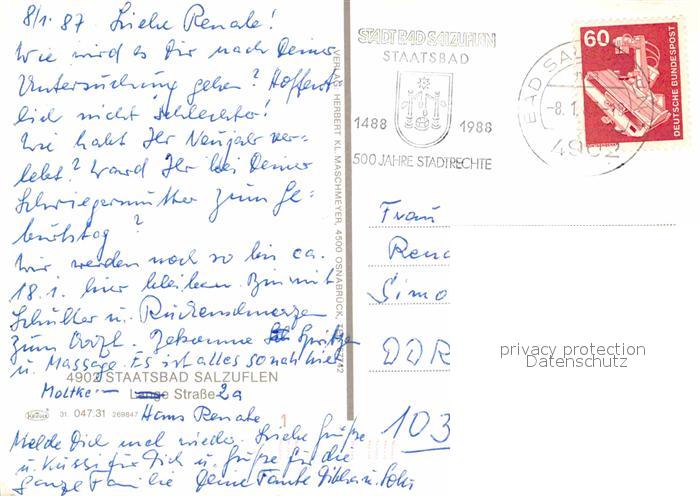 8/1.87 Liebe Renate!
Wie wird es Dir nach Deiner
Untersuchung gehen? Hoffent
lich nicht schlechter!
Wie habt Ihr Neujahr ver-
lebt? Ward Ihr bei Deiner
Schwiegermutter zum Ge-
burtstag?
Wir werden noch so bis ca.
18.1. hier bleiben. Bin mit
Schulter u. Rückenschmerzen
zum Arzt. Bekomme Spritzen
u. Massage. Es ist alles so nah hier
4902 STAATSBAD SALZUFLEN
Moltke- Lange Straße 2a
Krüger 31 047.31 269847
Haus Renate
Melde Dich mal wieder. Liebe Grüße
u. Küsse für Dich u. Grüße für die
ganze Familie Deine Tante
VERLAG HERBERT KL. MASCHMEYER, 4500 OSNABRÜCK,
STADT BAD SALZUFLEN
STAATSBAD
1488 1988
500 JAHRE STADTRECHTE
BAD SAL
-8.1.
4902
60
DEUTSCHE BUNDESPOST
Frau
Rena
Simo
DDR
103
privacy protection
Datenschutz